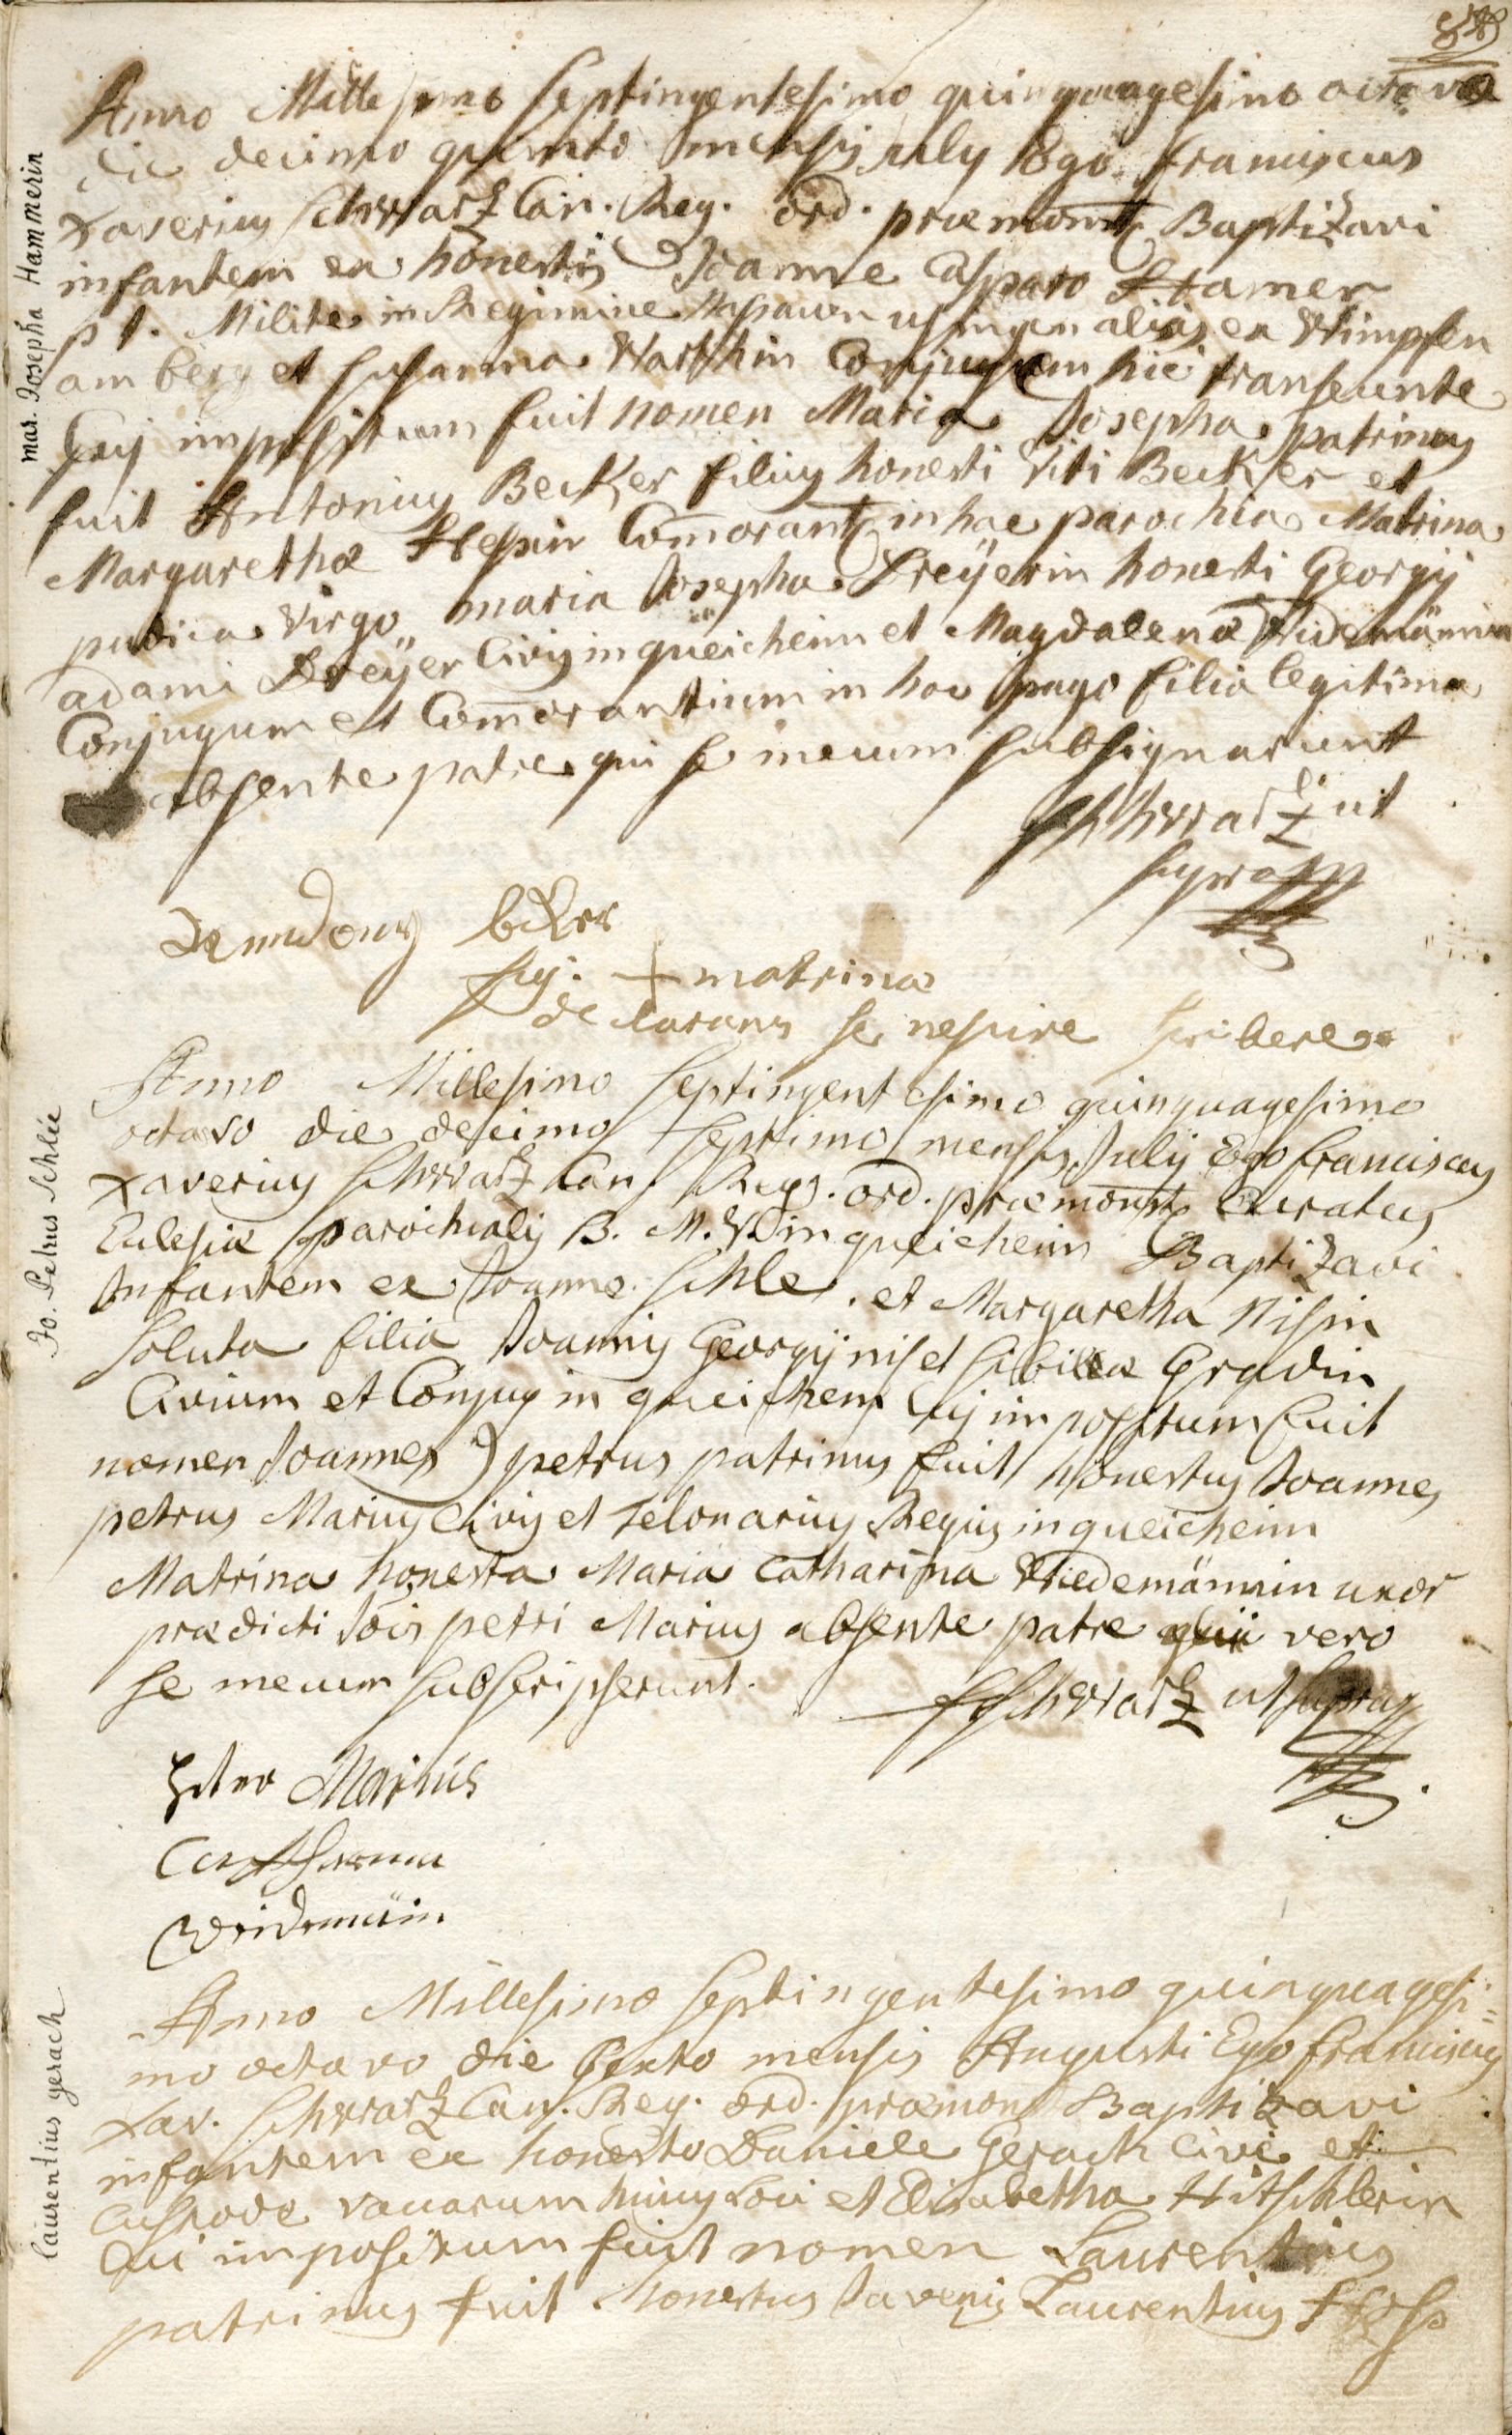 Anno Millesimo septingentesimo quinquagesimo octavo
die decimo quinto mensis July Ego Franciscus
Xaverius Schwartz Can. Reg. ord. præmonst Baptizavi
infantem ex honestis Joanne Casparo Hamer
p t. Milite in Regimine Nassauw usingen alias ex Wimpfen
am berg et Susanna Conjugum hic transeunte
Cuj impositum fuit nomen Maria Josepha, patrinus
fuit Antonius Becker filius honesti Viti Becker et
Margarethæ Hepin Com̄orant in hac parochia Matrina
pudica Virgo maria Josepha Dreÿerin honesti Georgij
adami Dreÿer Civis in queicheim et Magdalenæ Widemännin
Conjugum et Com̄orantium in hoc pago filia legitima
absente patre qui se mecum subsignarunt
Schwartz ut
supra
beker
sig. + matrina
declarans se nescire scribere
Anno Millesimo septingentesimo quinquagesimo
octavo die decimo septimo mensis July Ego franciscus
Xaverius Schwartz Can. Reg. ord. præmonst Curatus
Eclesiæ parochialis B. M. V. in queicheim Baptizavi
Infantem ex Joanne Schle. et Margaretha Nisin
soluta filia Joannis Georgij nis et sibillæ Gradin
Civium et Conjug in queichem Cuj impositum fuit
nomen Joannes petrus patrinus fuit honestus Joannes
petrus Marius Civis et Telonarius Regius in queicheim
Matrina honesta Maria Catharina Wiedemännin uxor
prædicti Jois petri Marius absente patre qui vero
se mecum subscripserunt.
Schwartz ut supra
Peter Marius
Catharina
Weidemäin
Anno Millesimo septingentesimo quinquagesi=
mo octavo die sexto mensis Augusti Ego franciscus
Xav. Schwartz Can. Reg. ord. præmons Baptizavi
infantem ex honesto Daniele Gerach Cive et
Custode vacarum hujus Loci et Elisabetha Hitschlerin
Cui impositum fuit nomen Laurentius
patrinus fuit honestus Juvenis Laurentius
mar. Josepha Hammerin
Jo. Petrus Schlée
laurentius gerach